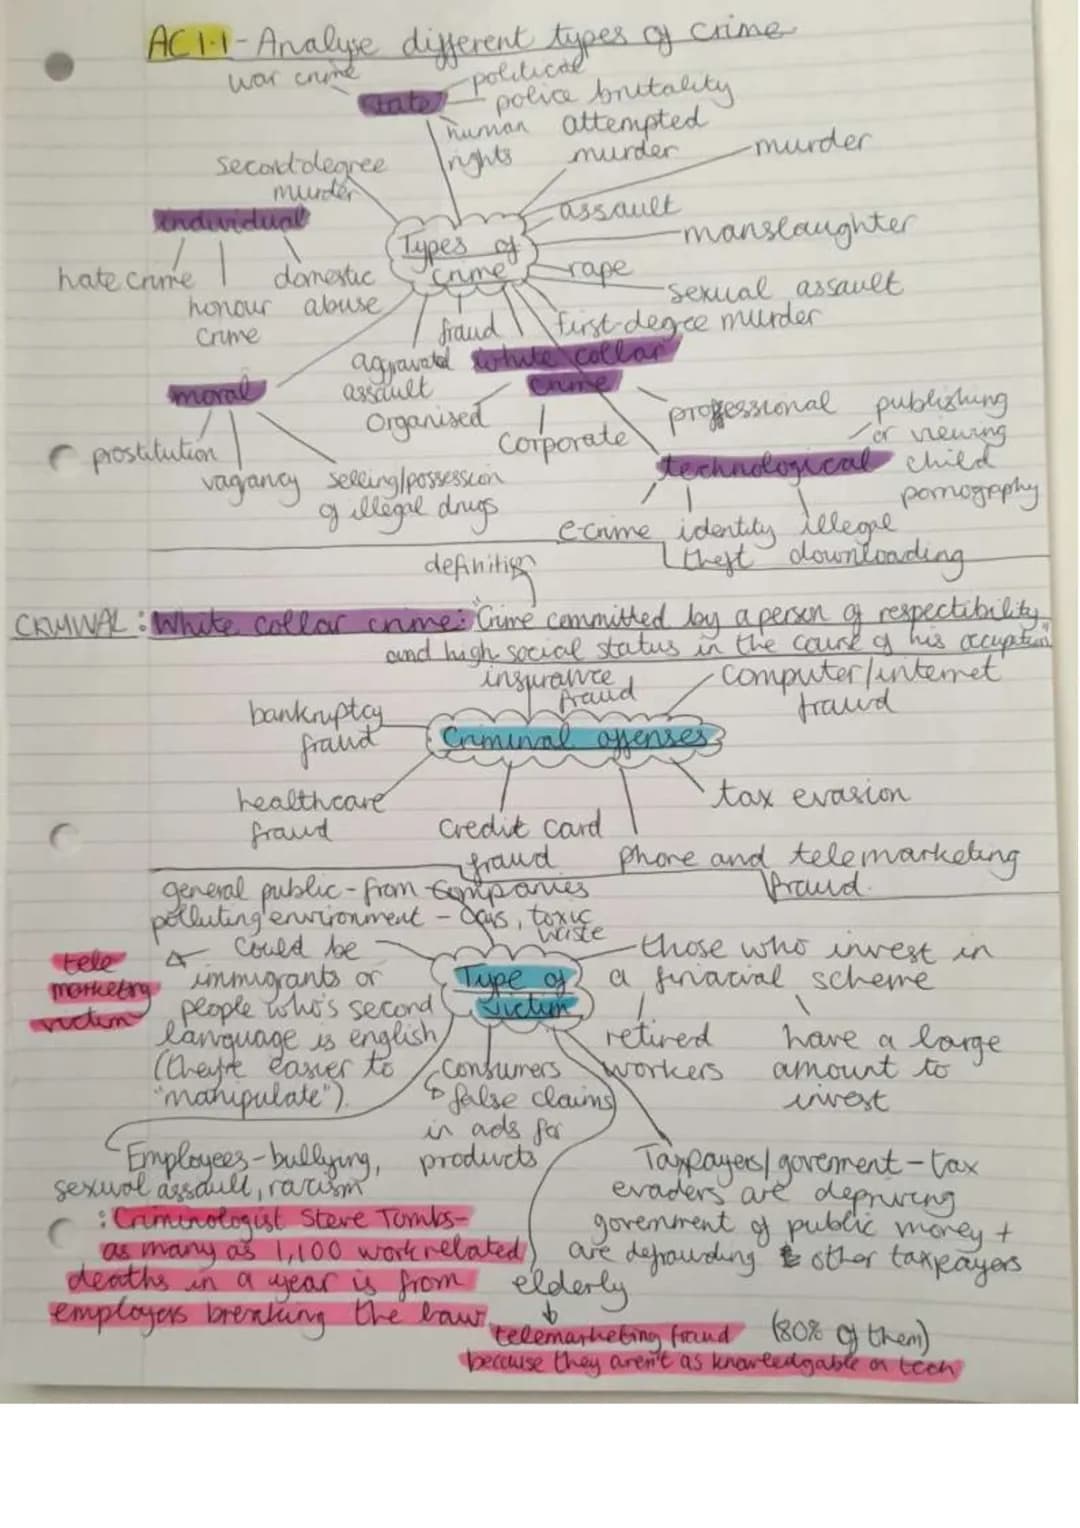 AC 1.1 - Analyse different types of crime
war crime
political
state
police brutality
human rights
attempted murder
murder
second-degree murder
individual
assault
manslaughter
Types of crime
hate crime
honour crime
domestic abuse
rape
sexual assault
fraud
first-degree murder
aggravated assault
white collar crime
moral
Organised
Corporate
professional
publishing
or viewing
child
pornography
technological
prostitution
vagancy
selling/possession
of illegal drugs
e-crime
identity theft
illegal downloading
definition
CRIMINAL : White collar crime: "Crime committed by a person of respectibility
and high social status in the course of his occuption"
insurance fraud
computer/internet
fraud
bankruptcy
fraud
Criminal offenses
healthcare
fraud
credit card
fraud
tax evasion
phone and telemarketing
fraud.
general public - from companies
polluting environment - gas, toxic
waste
tele
marketing
victim
could be
immigrants or
people who's second
language is english
(they're easier to
"manipulate").
Type of
victim
those who invest in
a finacial scheme
retired
workers
have a large
amount to
invest
Consumers
false claims
in ads for
products
Employees - bullying,
sexual assault, racism
: Criminologist Steve Tombs-
as many as 1,100 work related
deaths in a year is from
employers breaking the law
Taxpayers/goverment - tax
evaders are depriving
government of public money +
are defrauding other taxpayers
elderly
telemarketing fraud (80% of them)
because they aren't as knowledgable on tech